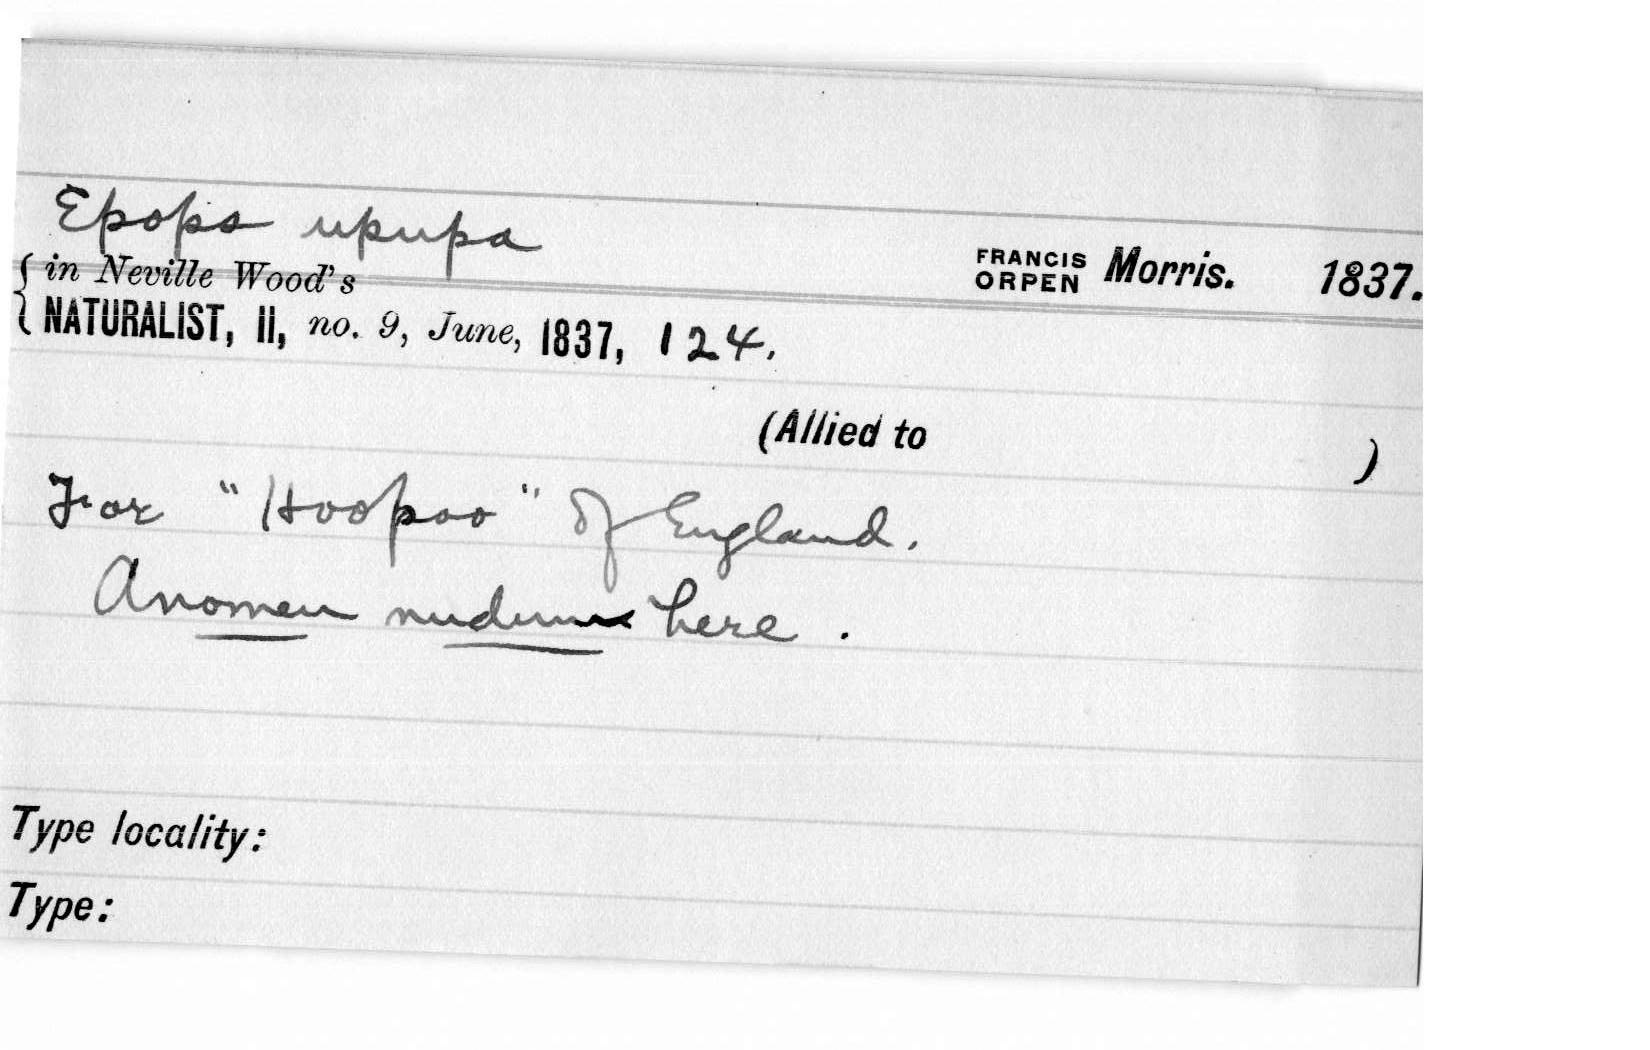 Epops upupa
FRANCIS ORPEN Morris. 1837.
{in Neville Wood's
NATURALIST, II, no. 9, June, 1837, 124.
(Allied to )
For "Hoopoo" of England.
A nomen nudum here.
Type locality:
Type: